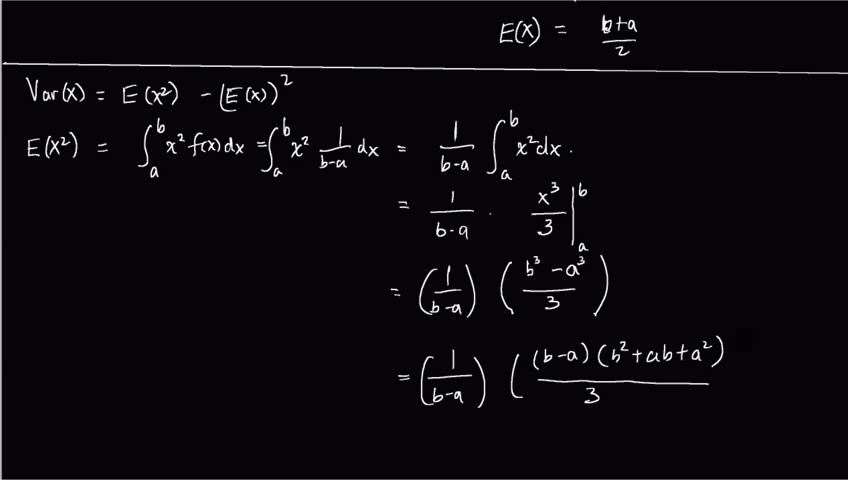 E(X) = b+a/2
Var(x) = E(x²) - (E(x))²
E(X²) = ∫ₐᵇ x² f(x) dx = ∫ₐᵇ x² 1/(b-a) dx = 1/(b-a) ∫ₐᵇ x² dx.
= 1/(b-a) · x³/3 |ₐᵇ
= (1/(b-a)) (b³-a³/3)
= (1/(b-a)) ((b-a)(b²+ab+a²)/3